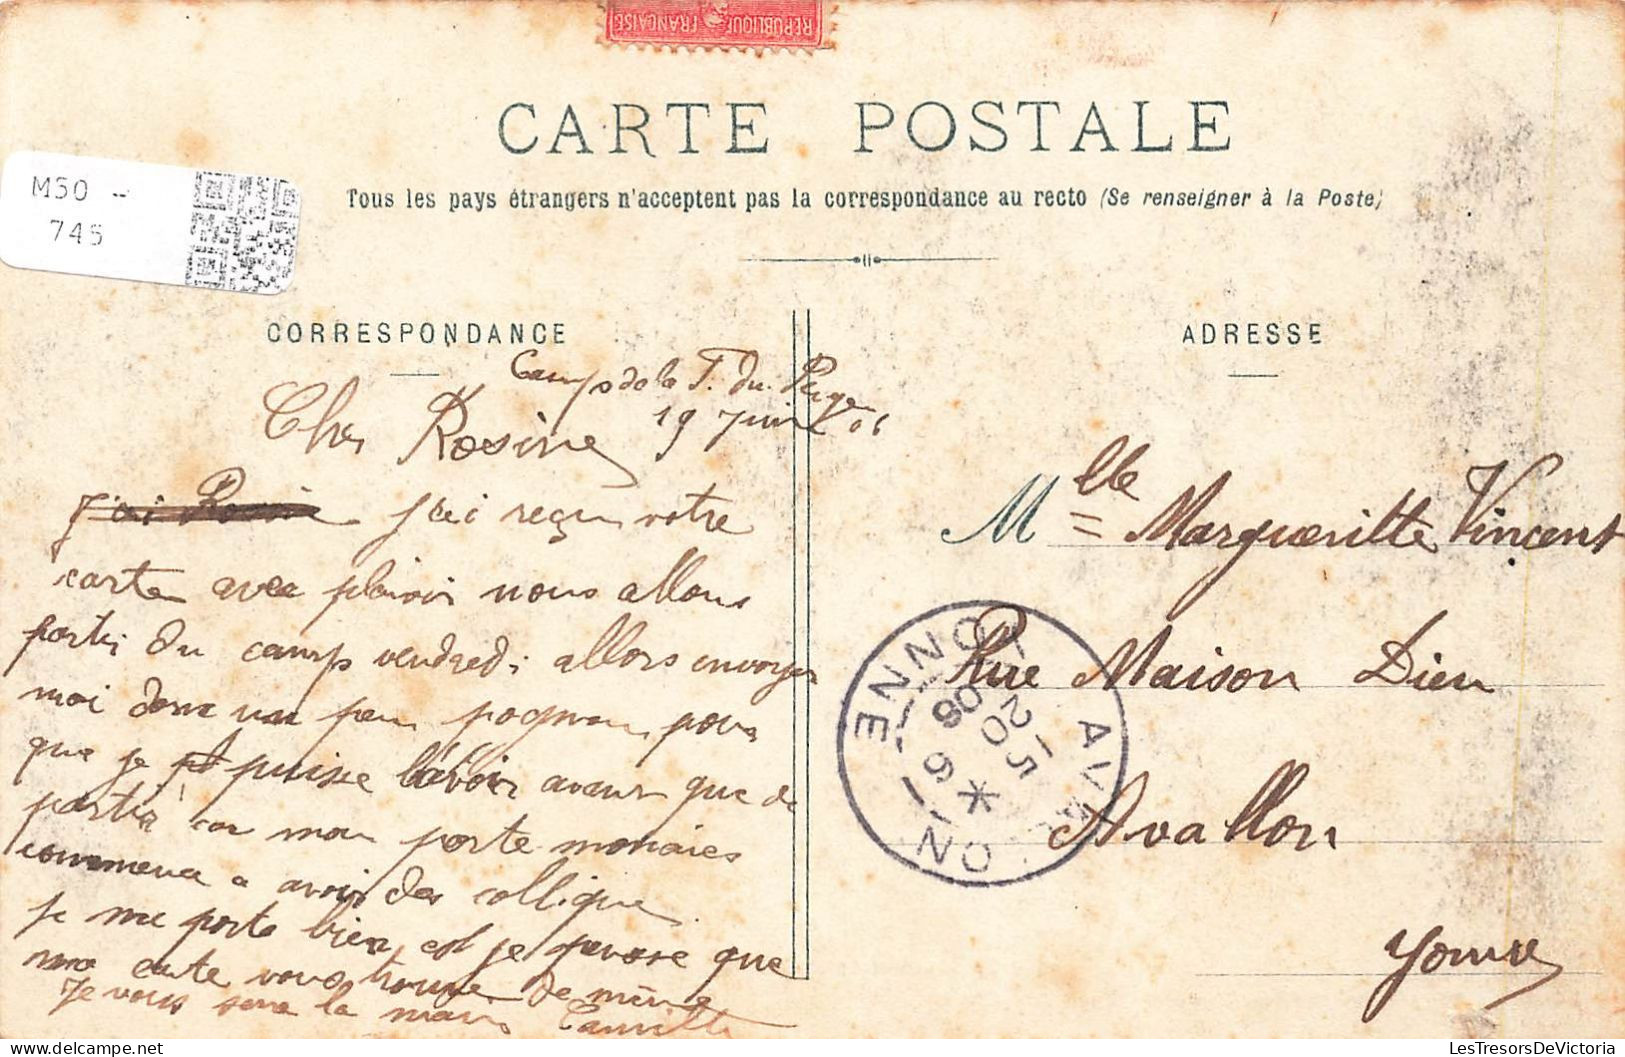 RÉPUBLIQUE FRANÇAISE
CARTE POSTALE
M50 -
745
Tous les pays étrangers n'acceptent pas la correspondance au recto (Se renseigner à la Poste)
CORRESPONDANCE
ADRESSE
Camps de la T. du Puge
19 Juin 06
Cher Rosine
J'ai j'ai reçu votre
carte avec plaisir nous allons
partir du camps vendredi allors envoyer
moi donc un peu pognon pour
que je puisse lavoir avant que de
partir car mon porte monaies
commence a avoir des collique
je me porte bien est je pense que
ma carte vous trouve de même
Je vous serre la main Camille
Mlle Margueritte Vincent
Rue Maison Dieu
Avallon
Yonne
AVALLON
YONNE
15
20 - 6
06
LesTresorsDeVictoria.com